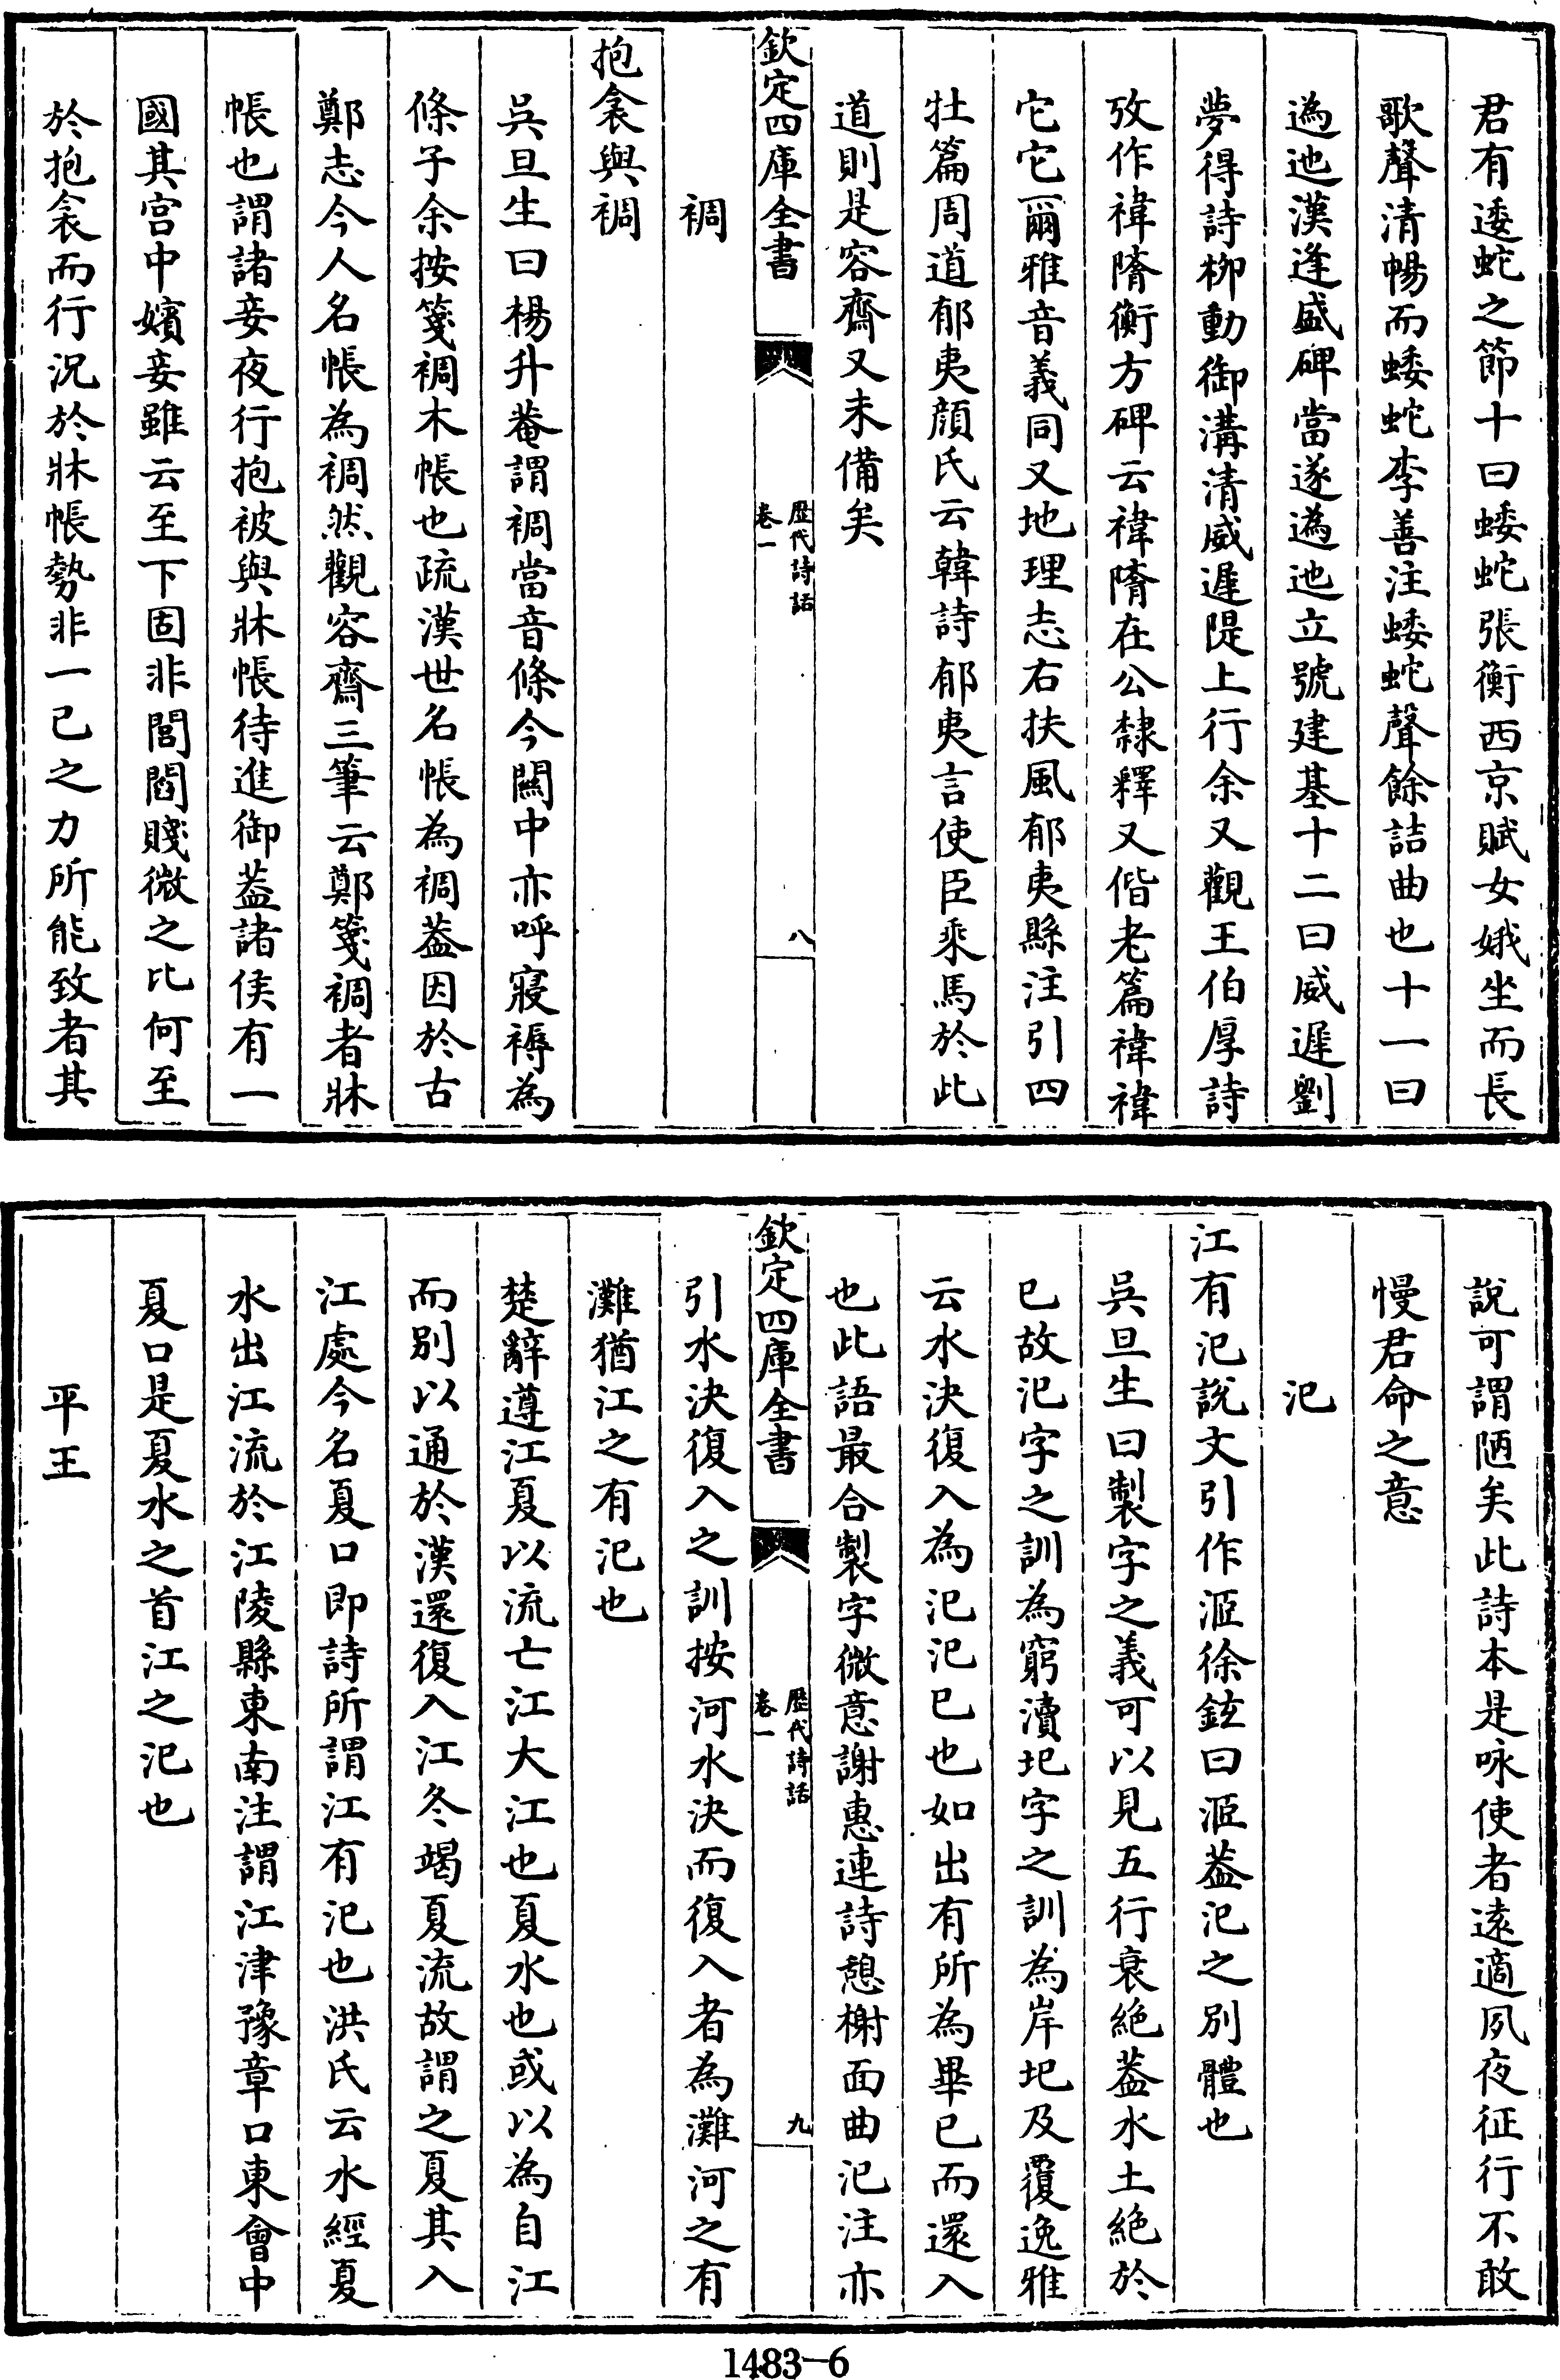 君有逶蛇之節十曰蜲蛇張衡西京賦女娥坐而長
歌聲清暢而蜲蛇李善注蜲蛇聲餘詰曲也十一曰
逶迆漢逢盛碑當遂逶迆立號建基十二曰威遲劉
夢得詩柳動御溝清威遲隄上行余又觀王伯厚詩
攷作禕隋衡方碑云禕隋在公隸釋又偕老篇禕禕
它它爾雅音義同又地理志右扶風郁夷縣注引四
牡篇周道郁夷顔氏云韓詩郁夷言使臣乘馬於此
道則是容齋又未備矣
欽定四庫全書
歷代詩話
卷一
八
裯
抱衾與裯
吳旦生曰楊升菴謂裯當音條今關中亦呼寢褥為
條子余按箋裯木帳也疏漢世名帳為裯葢因於古
鄭志今人名帳為裯然觀容齋三筆云鄭箋裯者牀
帳也謂諸妾夜行抱被與牀帳待進御葢諸侯有一
國其宫中嬪妾雖云至下固非閭閻賤微之比何至
於抱衾而行況於牀帳勢非一已之力所能致者其
說可謂陋矣此詩本是咏使者逺適夙夜征行不敢
慢君命之意
汜
江有汜說文引作洍徐鉉曰洍葢汜之別體也
吳旦生曰製字之義可以見五行衰絶葢水土絶於
巳故汜字之訓為窮瀆圯字之訓為岸圯及覆逸雅
云水決復入為汜汜巳也如出有所為畢巳而還入
也此語最合製字微意謝惠連詩憩榭面曲汜注亦
欽定四庫全書
歷代詩話
卷一
九
引水決復入之訓按河水決而復入者為灘河之有
灘猶江之有汜也
楚辭遵江夏以流亡江大江也夏水也或以為自江
而別以通於漢還復入江冬竭夏流故謂之夏其入
江處今名夏口即詩所謂江有汜也洪氏云水經夏
水出江流於江陵縣東南注謂江津豫章口東會中
夏口是夏水之首江之汜也
平王
1483-6